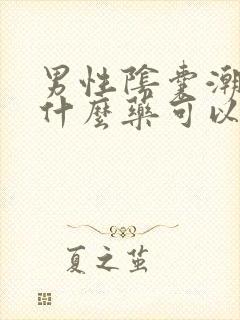 男性陰囊潮
什麼藥可以
夏之茧